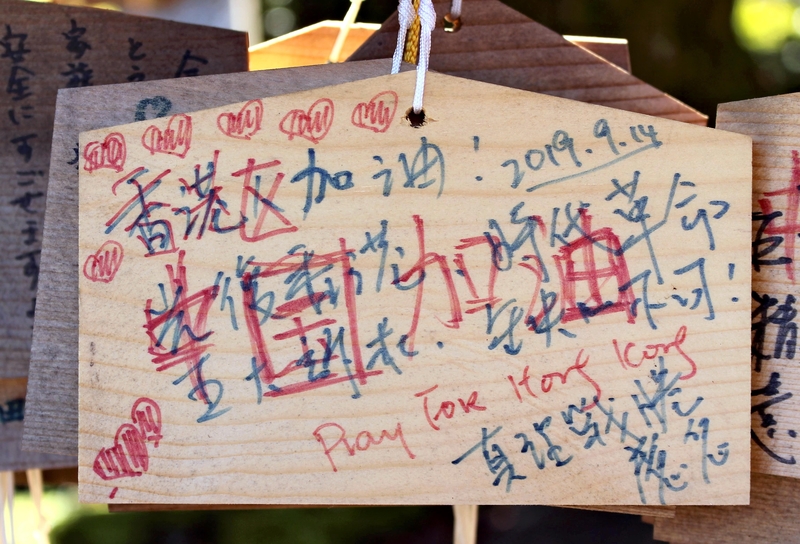 香港区加油！ 2019.9.14
光復香港. 時代革命
中国加油
五大訴求. 缺一不可！
Pray For Hong Kong
真理戰勝
家族
安全にすごせます